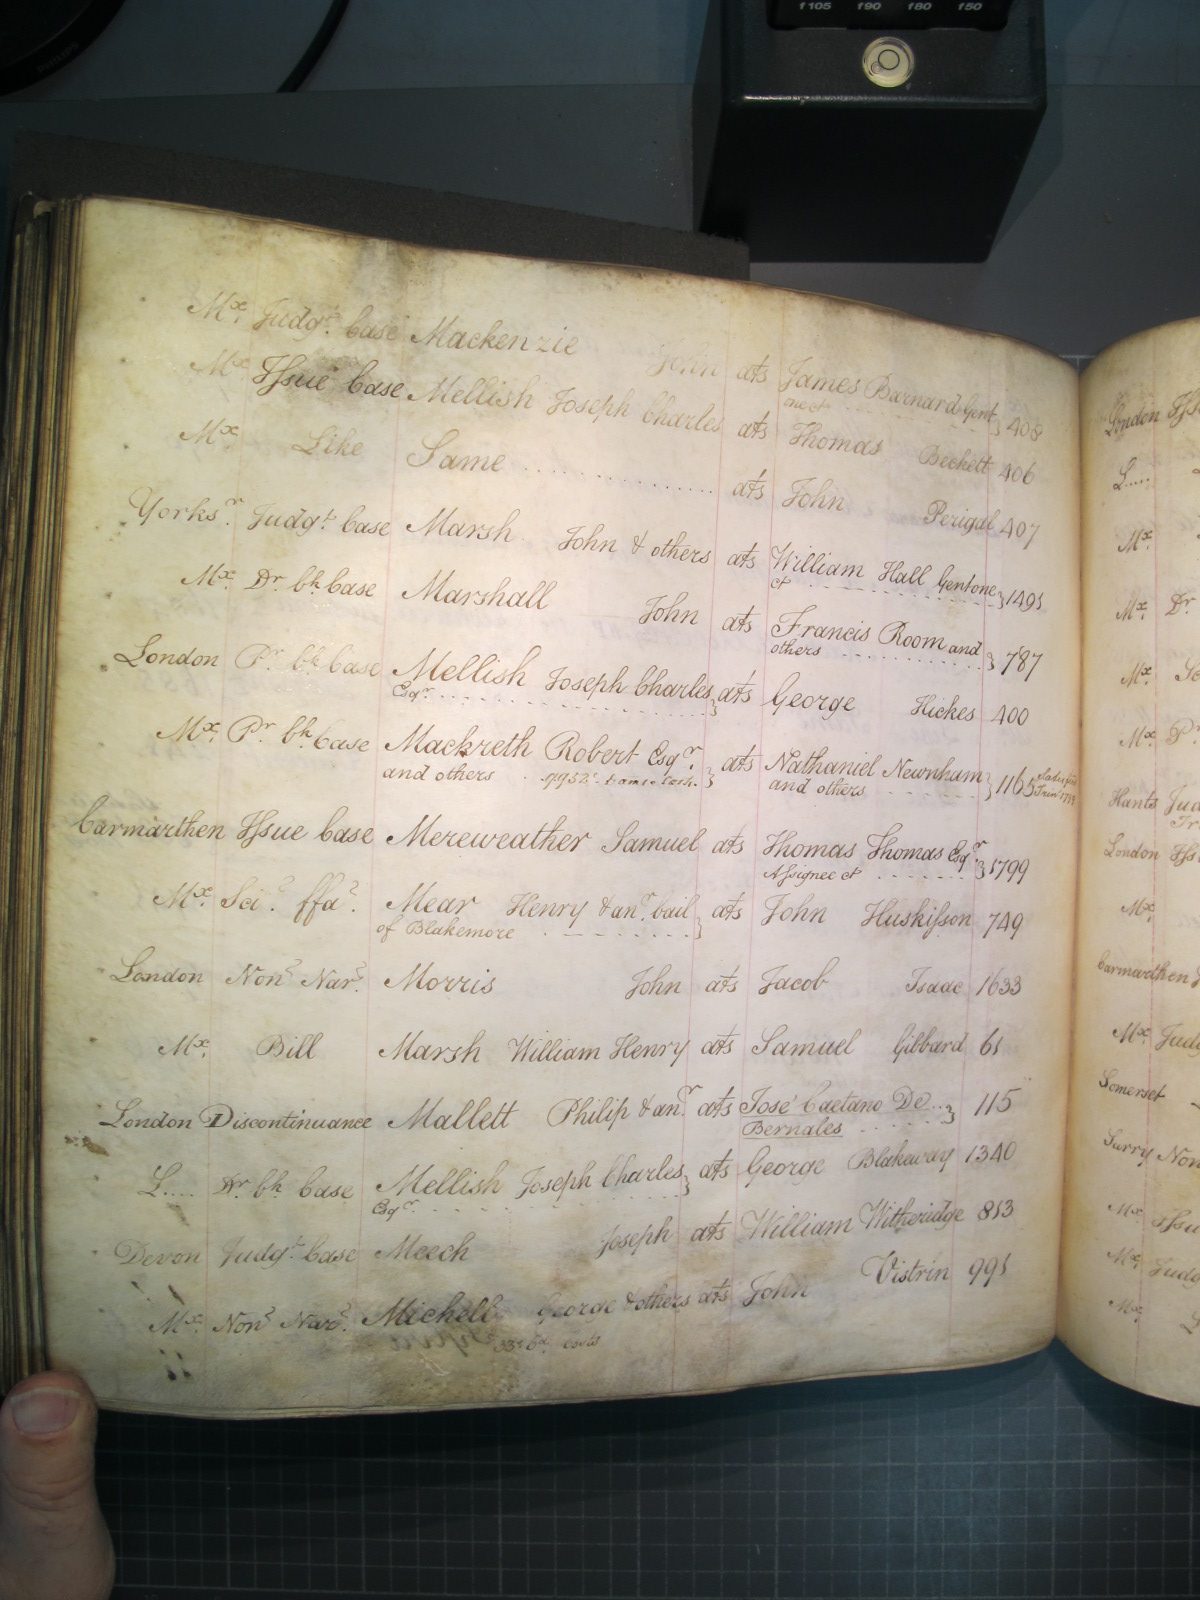 f105 f90 f80 f50
PHILIPS
Mx. Judgt. Case Mackenzie John ats James Barnard Gent
one &c 408
Mx Issue Case Mellish Joseph Charles ats Thomas Beckett 406
Mx Like Same ats John Perigal 407
Yorksr. Judgt Case Marsh John & others ats William Hall Gent one
&c 1491
Mx. Dr. bh. Case Marshall John ats Francis Room and
others 787
London Pr. bh. Case Mellish Joseph Charles
Esqr. ats George Hickes 400
Mx. Pr. bh. Case Mackreth Robert Esqr.
and others ats Nathaniel Newnham
and others 1165
Carmarthen Issue Case Mereweather Samuel ats Thomas Thomas Esqr.
Assignee &c 1799
Mx. Sci. ffa. Mear Henry & anr. bail
of Blakemore ats John Huskisson 749
London Non Nar. Morris John ats Jacob Isaac 1633
Mx. Bill Marsh William Henry ats Samuel Gibbard 61
London Discontinuance Mallett Philip & anr ats José Caetano De
Bernales 115
L.... Dr. bh Case Mellish Joseph Charles
Esqr. ats George Blakeway 1340
Devon Judgt. Case Meech Joseph ats William Witheridge 813
Mx. Non Nar. Michell George & others ats John Vistrin 991
London
L.....
Mx.
Mx. Dr.
Mx.
Mx. Pr
Hants
London
Mx.
Carmarthen
Mx.
Somerset
Surry Non
Mx
Mx.
Mx.